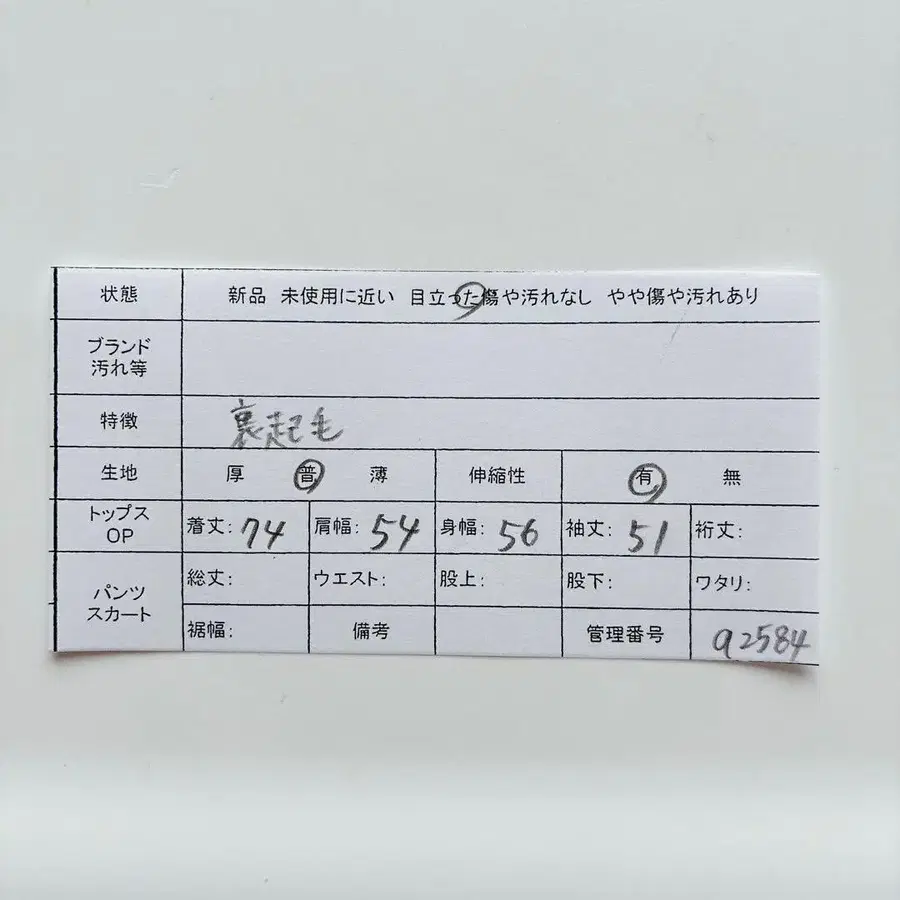 状態 新品 未使用に近い 目立った傷や汚れなし やや傷や汚れあり
ブランド
汚れ等
特徴 裏起毛
生地 厚 普 薄 伸縮性 有 無
トップス
OP
着丈: 74 肩幅: 54 身幅: 56 袖丈: 51 裄丈:
パンツ
スカート
総丈: ウエスト: 股上: 股下: ワタリ:
裾幅: 備考 管理番号 a2584